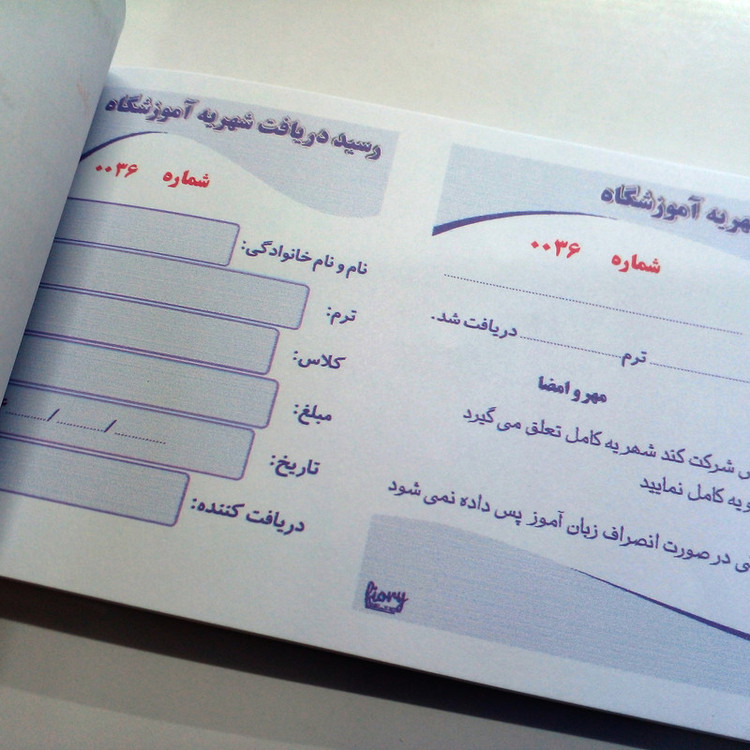 رسید دریافت شهریه آموزشگاه
شماره ۰۰۳۶
نام و نام خانوادگی:
ترم:
کلاس:
مبلغ:
تاریخ: / /
دریافت کننده:
شهریه آموزشگاه
شماره ۰۰۳۶
ترم دریافت شد.
مهر و امضا
شرکت کند شهریه کامل تعلق می گیرد
کامل نمایید
در صورت انصراف زبان آموز پس داده نمی شود
fiory